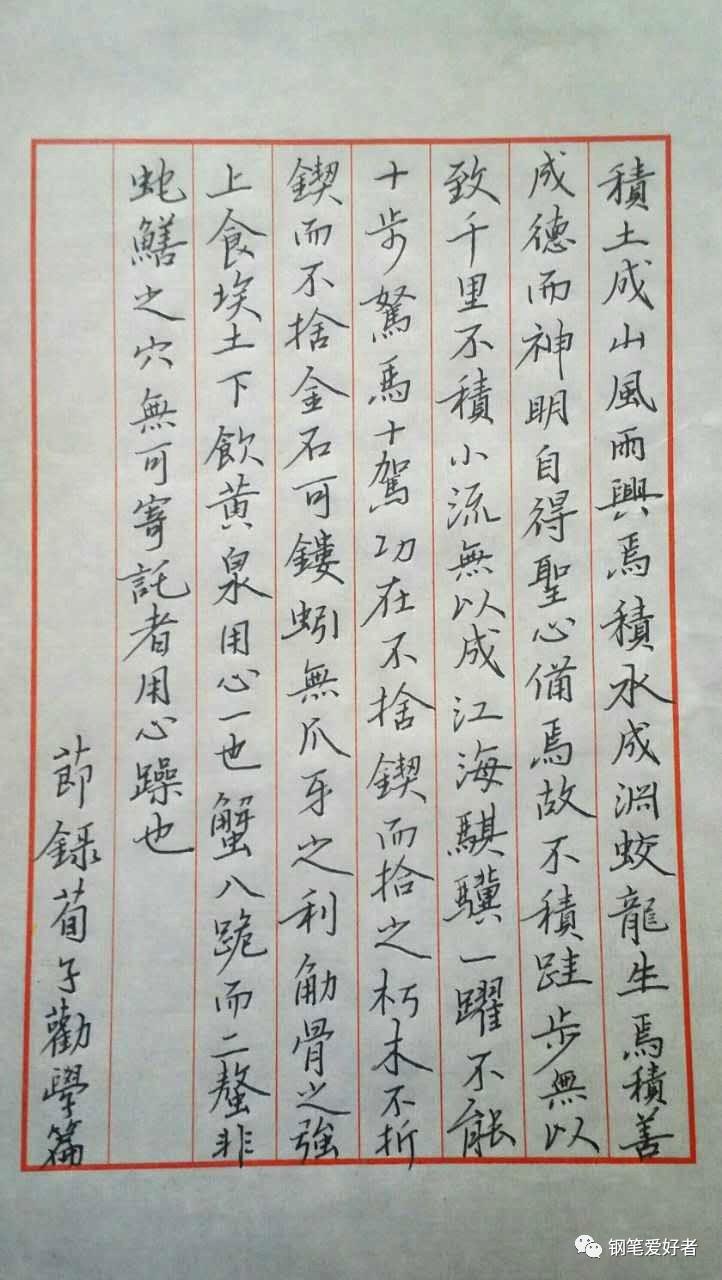 積土成山風雨興焉積水成淵蛟龍生焉積善
成德而神明自得聖心備焉故不積跬步無以
致千里不積小流無以成江海騏驥一躍不能
十步駑馬十駕功在不捨鍥而捨之朽木不折
鍥而不捨金石可鏤蚓無爪牙之利觔骨之強
上食埃土下飲黃泉用心一也蟹八跪而二螯非
虵鱔之穴無可寄託者用心躁也
節錄荀子勸學篇
钢笔爱好者